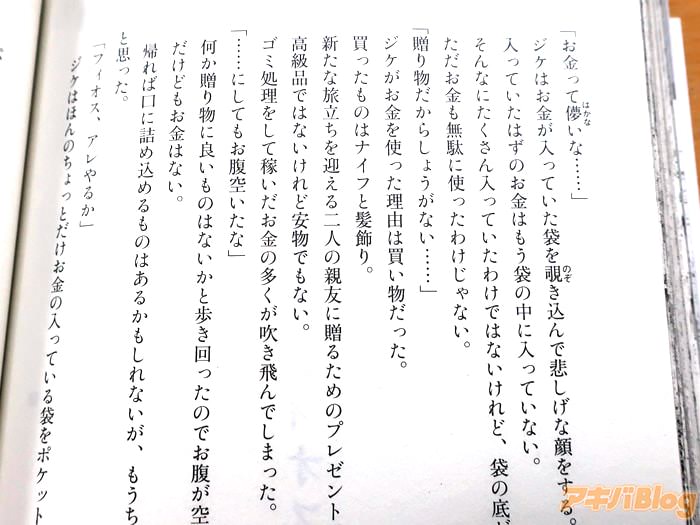 「お金って儚いな……」
はかな
ジケはお金が入っていた袋を覗き込んで悲しげな顔をする。
のぞ
入っていたはずのお金はもう袋の中に入っていない。
そんなにたくさん入っていたわけではないけれど、袋の底が
ただお金も無駄に使ったわけじゃない。
「贈り物だからしょうがない……」
ジケがお金を使った理由は買い物だった。
買ったものはナイフと髪飾り。
新たな旅立ちを迎える二人の親友に贈るためのプレゼント
高級品ではないけれど安物でもない。
ゴミ処理をして稼いだお金の多くが吹き飛んでしまった。
「……にしてもお腹空いたな」
何か贈り物に良いものはないかと歩き回ったのでお腹が空
だけどもお金はない。
帰れば口に詰め込めるものはあるかもしれないが、もうち
と思った。
「フィオス、アレやるか」
ジケはほんのちょっとだけお金の入っている袋をポケット
アキバBlog